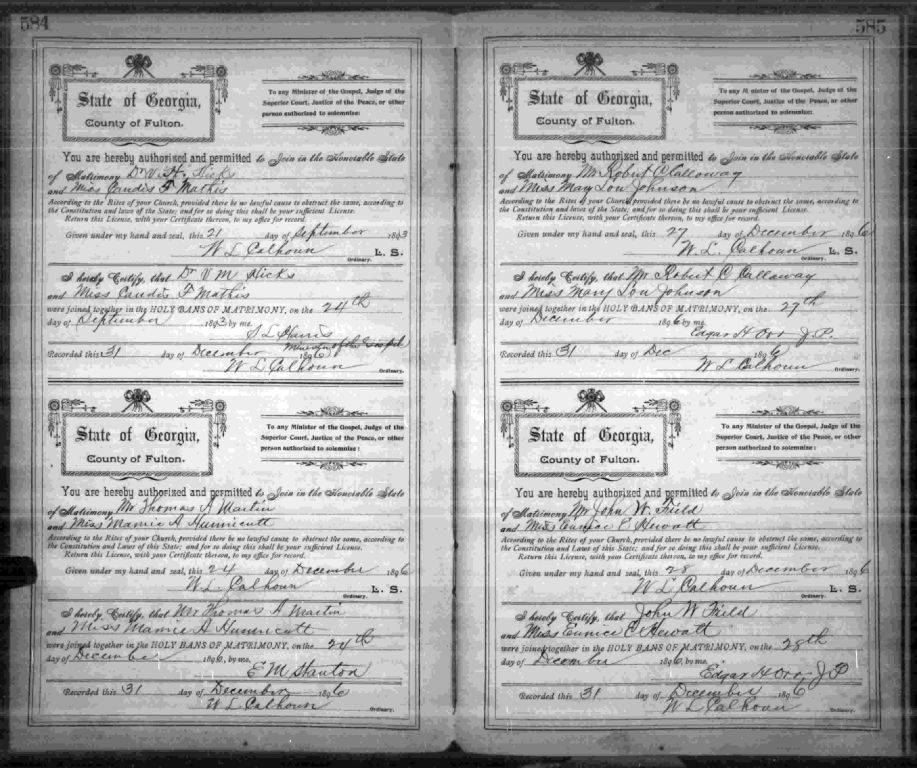 584
State of Georgia,
County of Fulton.
To any Minister of the Gospel, Judge of the
Superior Court, Justice of the Peace, or other
person authorized to solemnize:
You are hereby authorized and permitted to Join in the Honorable State
of Matrimony Dr V. H. Hicks
and Miss Candis F Mathis
According to the Rites of your Church, provided there be no lawful cause to obstruct the same, according to
the Constitution and laws of the State; and for so doing this shall be your sufficient License.
Return this License, with your Certificate thereon, to my office for record.
Given under my hand and seal, this 21 day of September 1893
W L Calhoun L. S.
Ordinary.
I hereby Certify, that Dr V M Hicks
and Miss Candis F Mathis
were joined together in the HOLY BANS OF MATRIMONY, on the 24th
day of September 1893 by me.
S L Harris
Minister of the Gospel
Recorded this 31 day of December 1896
W L Calhoun
Ordinary.
State of Georgia,
County of Fulton.
To any Minister of the Gospel, Judge of the
Superior Court, Justice of the Peace, or other
person authorized to solemnize:
You are hereby authorized and permitted to Join in the Honorable State
of Matrimony Mr Thomas A Martin
and Miss Mamie A Hunnicutt
According to the Rites of your Church, provided there be no lawful cause to obstruct the same, according to
the Constitution and Laws of this State; and for so doing this shall be your sufficient License.
Return this License, with your Certificate thereon, to my office for record.
Given under my hand and seal, this 24 day of December 1896
W. L. Calhoun L. S.
Ordinary.
I hereby Certify, that Mr Thomas A Martin
and Miss Mamie A Hunnicutt
were joined together in the HOLY BANS OF MATRIMONY, on the 24th
day of December 1896, by me.
E M Stanton
Recorded this 31 day of December 1896
W L Calhoun
Ordinary.
585
State of Georgia,
County of Fulton.
To any Minister of the Gospel, Judge of the
Superior Court, Justice of the Peace, or other
person authorized to solemnize:
You are hereby authorized and permitted to Join in the Honorable State
of Matrimony Mr Robert C Calloway
and Miss Mary Lou Johnson
According to the Rites of your Church, provided there be no lawful cause to obstruct the same, according to
the Constitution and laws of the State; and for so doing this shall be your sufficient License.
Return this License, with your Certificate thereon, to my office for record.
Given under my hand and seal, this 27 day of December 1896
W. L. Calhoun L. S.
Ordinary.
I hereby Certify, that Mr Robert C Callaway
and Miss Mary Lou Johnson
were joined together in the HOLY BANS OF MATRIMONY, on the 27th
day of December 1896 by me.
Edgar H Orr J P.
Recorded this 31 day of Dec 1896
W L Calhoun
Ordinary.
State of Georgia,
County of Fulton.
To any Minister of the Gospel, Judge of the
Superior Court, Justice of the Peace, or other
person authorized to solemnize:
You are hereby authorized and permitted to Join in the Honorable State
of Matrimony Mr John W. Field
and Miss Eunice E Hewatt
According to the Rites of your Church, provided there be no lawful cause to obstruct the same, according to
the Constitution and Laws of this State; and for so doing this shall be your sufficient License.
Return this License, with your Certificate thereon, to my office for record.
Given under my hand and seal, this 28 day of December 1896
W L Calhoun L. S.
Ordinary.
I hereby Certify, that John W Field
and Miss Eunice E Hewatt
were joined together in the HOLY BANS OF MATRIMONY, on the 28th
day of December 1896, by me.
Edgar H Orr J P
Recorded this 31 day of December 1896
W L Calhoun
Ordinary.